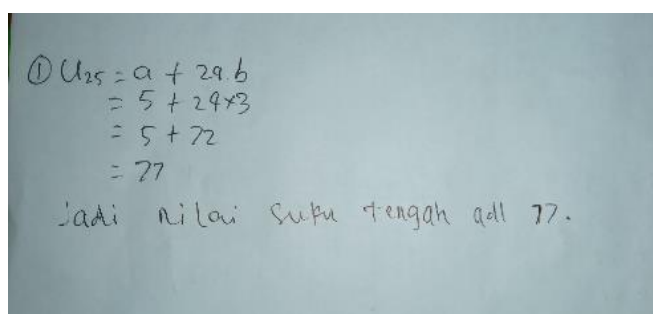 ① U25 = a + 24.b
= 5 + 24×3
= 5 + 72
= 77
Jadi nilai suku tengah adl 77.